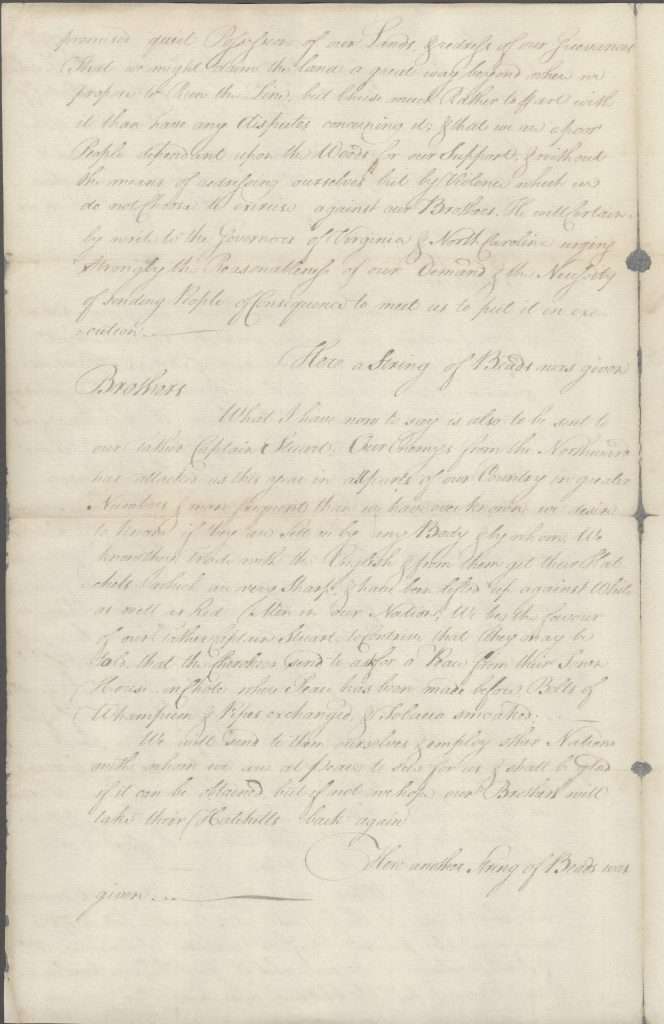 promised quiet Possession of our Lands, & redress of our Greivances
That we might claim the land a great way beyond where we
propose to Run the Line, but Chuse much Rather to part with
it than have any disputes concerning it; & that we are a poor
People dependant upon the Woods for our Support, & without
the means of redressing ourselves but by Violence which we
do not Choose to exercise against our Brothers. He will Certain-
ly write to the Governors of Virginia & North Carolina urging
strongly the Reasonableness of our Demand & the Necessity
of sending People of Consequence to meet us to put it in exe-
cution
Here a String of Beads was given
Brothers
What I have now to say is also to be sent to
our father Captain Stuart. Our Enemys from the Northward
has attacked us this year in all parts of our Country in greater
Numbers & more frequent than we have ever known we desire
to know if they are set on by any Body & by whom. We
know they trade with the English & from them get their Hat
chets which are very Sharp & have been lifted up against White
as well as Red Men in our Nation; We beg the favour
of our father Captain Stuart to contrive that they may be
told that the Cherokees send to ask for a Peace from their
House in Chote where Peace has been made before Belts of
Whampum & Pipes exchanged & Tobacco smoaked.
We will send to them ourselves & employ other Nations
with whom we are at peace to do so for us & shall be glad
if it can be obtained but if not we hope our Brothers will
take their Hatchetts back again
Here another String of Beads was
given